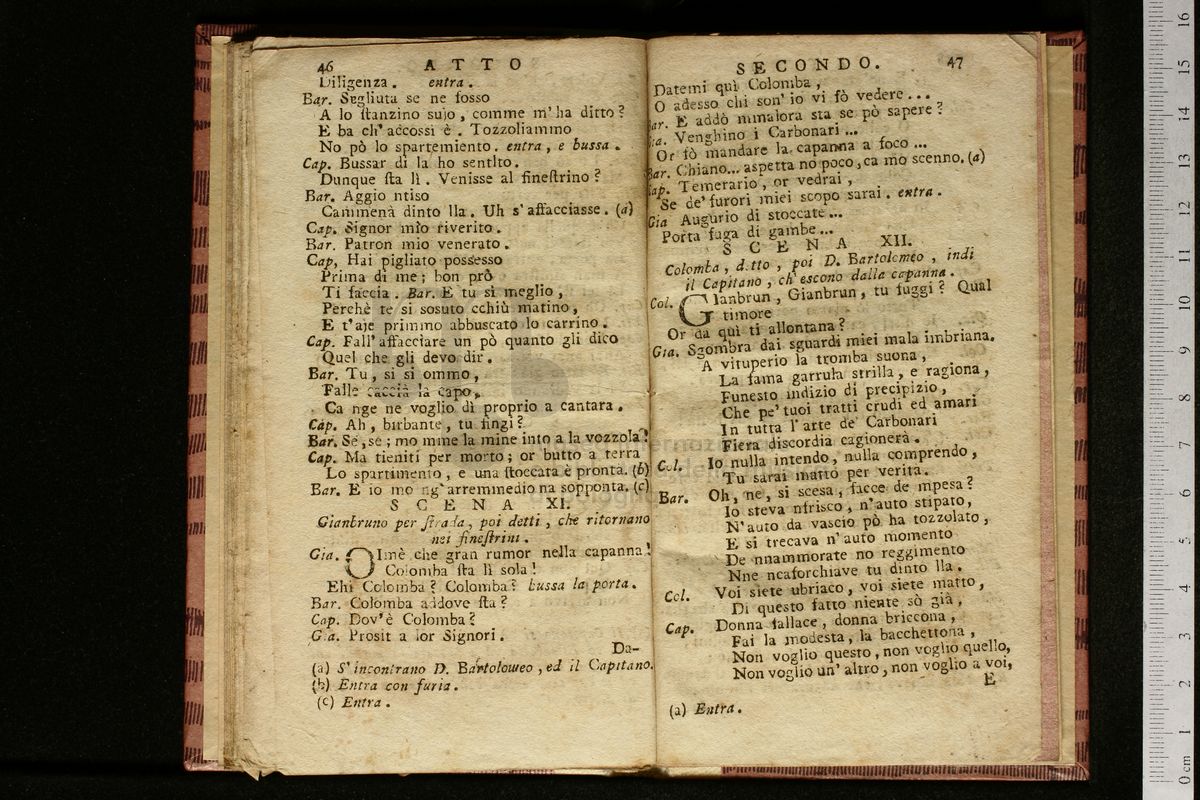 46 ATTO
Diligenza. entra.
Bar. Segliuta se ne fosso
A lo stanzino sujo, comme m'ha ditto?
E ba ch' accossì è. Tozzoliammo
No pò lo spartemiento. entra, e bussa.
Cap. Bussar di la ho sentito.
Dunque sta lì. Venisse al finestrino?
Bar. Aggio ntiso
Cammenà dinto lla. Uh s' affacciasse. (a)
Cap. Signor mio riverito.
Bar. Patron mio venerato.
Cap. Hai pigliato possesso
Prima di me; bon prò
Ti faccia. Bar. E tu sì meglio,
Perchè te sì sosuto cchiù matino,
E t'aje primmo abbuscato lo carrino.
Cap. Fall' affacciare un pò quanto gli dico
Quel che gli devo dir.
Bar. Tu, si sì ommo,
Falle caccià la capo,
Ca nge ne voglio dì proprio a cantara.
Cap. Ah, birbante, tu fingi?
Bar. Se, se; mo mme la mine into a la vozzola!
Cap. Ma tieniti per morto; or butto a terra
Lo spartimento, e una stoccata è pronta. (b)
Bar. E io mo ng' arremmedio na sopponta. (c)
SCENA XI.
Gianbruno per strada, poi detti, che ritornano
nei finestrini.
Gia. OImè che gran rumor nella capanna!
Colomba sta lì sola!
Ehi Colomba? Colomba? bussa la porta.
Bar. Colomba addove sta?
Cap. Dov'è Colomba?
Gia. Prosit a lor Signori.
Da-
(a) S' incontrano D. Bartolomeo, ed il Capitano.
(b) Entra con furia.
(c) Entra.
SECONDO. 47
Datemi quì Colomba,
O adesso chi son' io vi fò vedere...
Bar. E addò mmalora sta se pò sapere?
Gia. Venghino i Carbonari...
Or fò mandare la capanna a foco...
Bar. Chiano... aspetta no poco, ca mo scenno. (a)
Cap. Temerario, or vedrai,
Se de' furori miei scopo sarai. entra.
Gia Augurio di stoccate...
Porta fuga di gambe...
SCENA XII.
Colomba, detto, poi D. Bartolomeo, indi
il Capitano, ch' escono dalla capanna.
Col. GIanbrun, Gianbrun, tu fuggi? Qual
timore
Or da quì ti allontana?
Gia. Sgombra dai sguardi miei mala imbriana.
A vituperio la tromba suona,
La fama garrula strilla, e ragiona,
Funesto indizio di precipizio,
Che pe' tuoi tratti crudi ed amari
In tutta l' arte de' Carbonari
Fiera discordia cagionerà.
Col. Io nulla intendo, nulla comprendo,
Tu sarai matto per verita.
Bar. Oh, ne, si scesa, facce de mpesa?
Io steva nfrisco, n'auto stipato,
N'auto da vascio pò ha tozzolato,
E si trecava n' auto momento
De nnammorate no reggimento
Nne ncaforchiave tu dinto lla.
Col. Voi siete ubriaco, voi siete matto,
Di questo fatto niente sò già,
Cap. Donna fallace, donna briccona,
Fai la modesta, la bacchettona,
Non voglio questo, non voglio quello,
Non voglio un' altro, non voglio a voi,
E
(a) Entra.